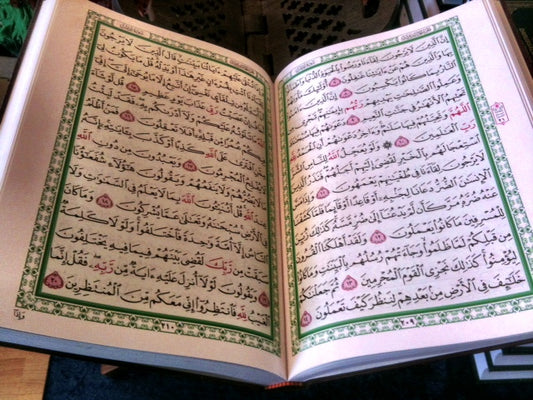 إِنَّ الَّذِينَ لَا يَرْجُونَ لِقَاءَنَا وَرَضُوا بِالْحَيَوٰةِ الدُّنْيَا وَاطْمَأَنُّوا
بِهَا وَالَّذِينَ هُمْ عَنْ ءَايَٰتِنَا غَٰفِلُونَ ٧ أُولَٰئِكَ مَأْوَىٰهُمُ
النَّارُ بِمَا كَانُوا يَكْسِبُونَ ٨ إِنَّ الَّذِينَ ءَامَنُوا
وَعَمِلُوا الصَّٰلِحَٰتِ يَهْدِيهِمْ رَبُّهُم بِإِيمَٰنِهِمْ تَجْرِي مِن
تَحْتِهِمُ الْأَنْهَٰرُ فِي جَنَّٰتِ النَّعِيمِ ٩ دَعْوَىٰهُمْ فِيهَا سُبْحَٰنَكَ
اللَّهُمَّ وَتَحِيَّتُهُمْ فِيهَا سَلَٰمٌ وَءَاخِرُ دَعْوَىٰهُمْ أَنِ الْحَمْدُ لِلَّهِ
رَبِّ الْعَٰلَمِينَ ١٠ ۞ وَلَوْ يُعَجِّلُ اللَّهُ لِلنَّاسِ الشَّرَّ
اسْتِعْجَالَهُم بِالْخَيْرِ لَقُضِيَ إِلَيْهِمْ أَجَلُهُمْ فَنَذَرُ الَّذِينَ
لَا يَرْجُونَ لِقَاءَنَا فِي طُغْيَٰنِهِمْ يَعْمَهُونَ ١١ وَإِذَا مَسَّ
الْإِنسَٰنَ الضُّرُّ دَعَانَا لِجَنبِهِ أَوْ قَاعِدًا أَوْ قَائِمًا فَلَمَّا كَشَفْنَا
عَنْهُ ضُرَّهُ مَرَّ كَأَن لَّمْ يَدْعُنَا إِلَىٰ ضُرٍّ مَّسَّهُ كَذَٰلِكَ زُيِّنَ
لِلْمُسْرِفِينَ مَا كَانُوا يَعْمَلُونَ ١٢ وَلَقَدْ أَهْلَكْنَا الْقُرُونَ
مِن قَبْلِكُمْ لَمَّا ظَلَمُوا وَجَاءَتْهُمْ رُسُلُهُم بِالْبَيِّنَٰتِ وَمَا كَانُوا
لِيُؤْمِنُوا كَذَٰلِكَ نَجْزِي الْقَوْمَ الْمُجْرِمِينَ ١٣ ثُمَّ جَعَلْنَٰكُمْ
خَلَٰئِفَ فِي الْأَرْضِ مِن بَعْدِهِمْ لِنَنظُرَ كَيْفَ تَعْمَلُونَ ١٤
٢٠٩
وَإِذَا تُتْلَىٰ عَلَيْهِمْ ءَايَاتُنَا بَيِّنَٰتٍ قَالَ الَّذِينَ لَا يَرْجُونَ
لِقَاءَنَا ائْتِ بِقُرْءَانٍ غَيْرِ هَٰذَا أَوْ بَدِّلْهُ قُلْ مَا يَكُونُ لِي
أَنْ أُبَدِّلَهُ مِن تِلْقَائِ نَفْسِي إِنْ أَتَّبِعُ إِلَّا مَا يُوحَىٰ إِلَيَّ إِنِّي
أَخَافُ إِنْ عَصَيْتُ رَبِّي عَذَابَ يَوْمٍ عَظِيمٍ ١٥ قُل لَّوْ شَاءَ
اللَّهُ مَا تَلَوْتُهُ عَلَيْكُمْ وَلَا أَدْرَىٰكُم بِهِ فَقَدْ لَبِثْتُ
فِيكُمْ عُمُرًا مِّن قَبْلِهِ أَفَلَا تَعْقِلُونَ ١٦ فَمَنْ أَظْلَمُ
مِمَّنِ افْتَرَىٰ عَلَى اللَّهِ كَذِبًا أَوْ كَذَّبَ بِـَٔايَٰتِهِ إِنَّهُ
لَا يُفْلِحُ الْمُجْرِمُونَ ١٧ وَيَعْبُدُونَ مِن دُونِ اللَّهِ
مَا لَا يَضُرُّهُمْ وَلَا يَنفَعُهُمْ وَيَقُولُونَ هَٰؤُلَاءِ شُفَعَٰؤُنَا
عِندَ اللَّهِ قُلْ أَتُنَبِّـُٔونَ اللَّهَ بِمَا لَا يَعْلَمُ فِي السَّمَٰوَٰتِ وَلَا
فِي الْأَرْضِ سُبْحَٰنَهُ وَتَعَٰلَىٰ عَمَّا يُشْرِكُونَ ١٨ وَمَا كَانَ
النَّاسُ إِلَّا أُمَّةً وَٰحِدَةً فَاخْتَلَفُوا وَلَوْلَا كَلِمَةٌ
سَبَقَتْ مِن رَّبِّكَ لَقُضِيَ بَيْنَهُمْ فِيمَا فِيهِ يَخْتَلِفُونَ ١٩
وَيَقُولُونَ لَوْلَا أُنزِلَ عَلَيْهِ ءَايَةٌ مِّن رَّبِّهِ فَقُلْ إِنَّمَا
الْغَيْبُ لِلَّهِ فَانتَظِرُوا إِنِّي مَعَكُم مِّنَ الْمُنتَظِرِينَ ٢٠
٢١٠